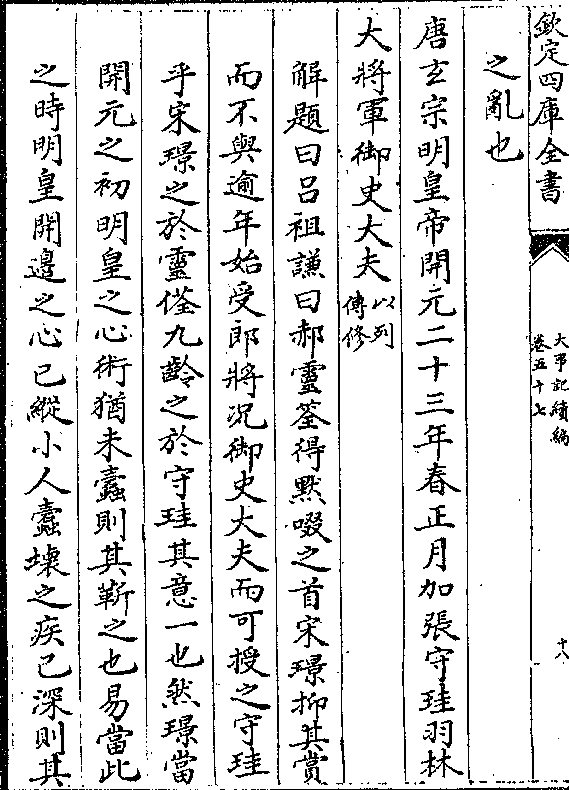 欽定四庫全書
大事記續編
卷五十七
十八
之亂也
唐玄宗明皇帝開元二十三年春正月加張守珪羽林
大將軍御史大夫以列
傳修
解題曰呂祖謙曰郝靈筌得默啜之首宋璟抑其賞
而不與逾年始受郎將况御史大夫而可授之守珪
乎宋璟之於靈筌九齡之於守珪其意一也然璟當
開元之初明皇之心術猶未蠧則其靳之也易當此
之時明皇開邉之心已縱小人蠧壊之疾已深則其